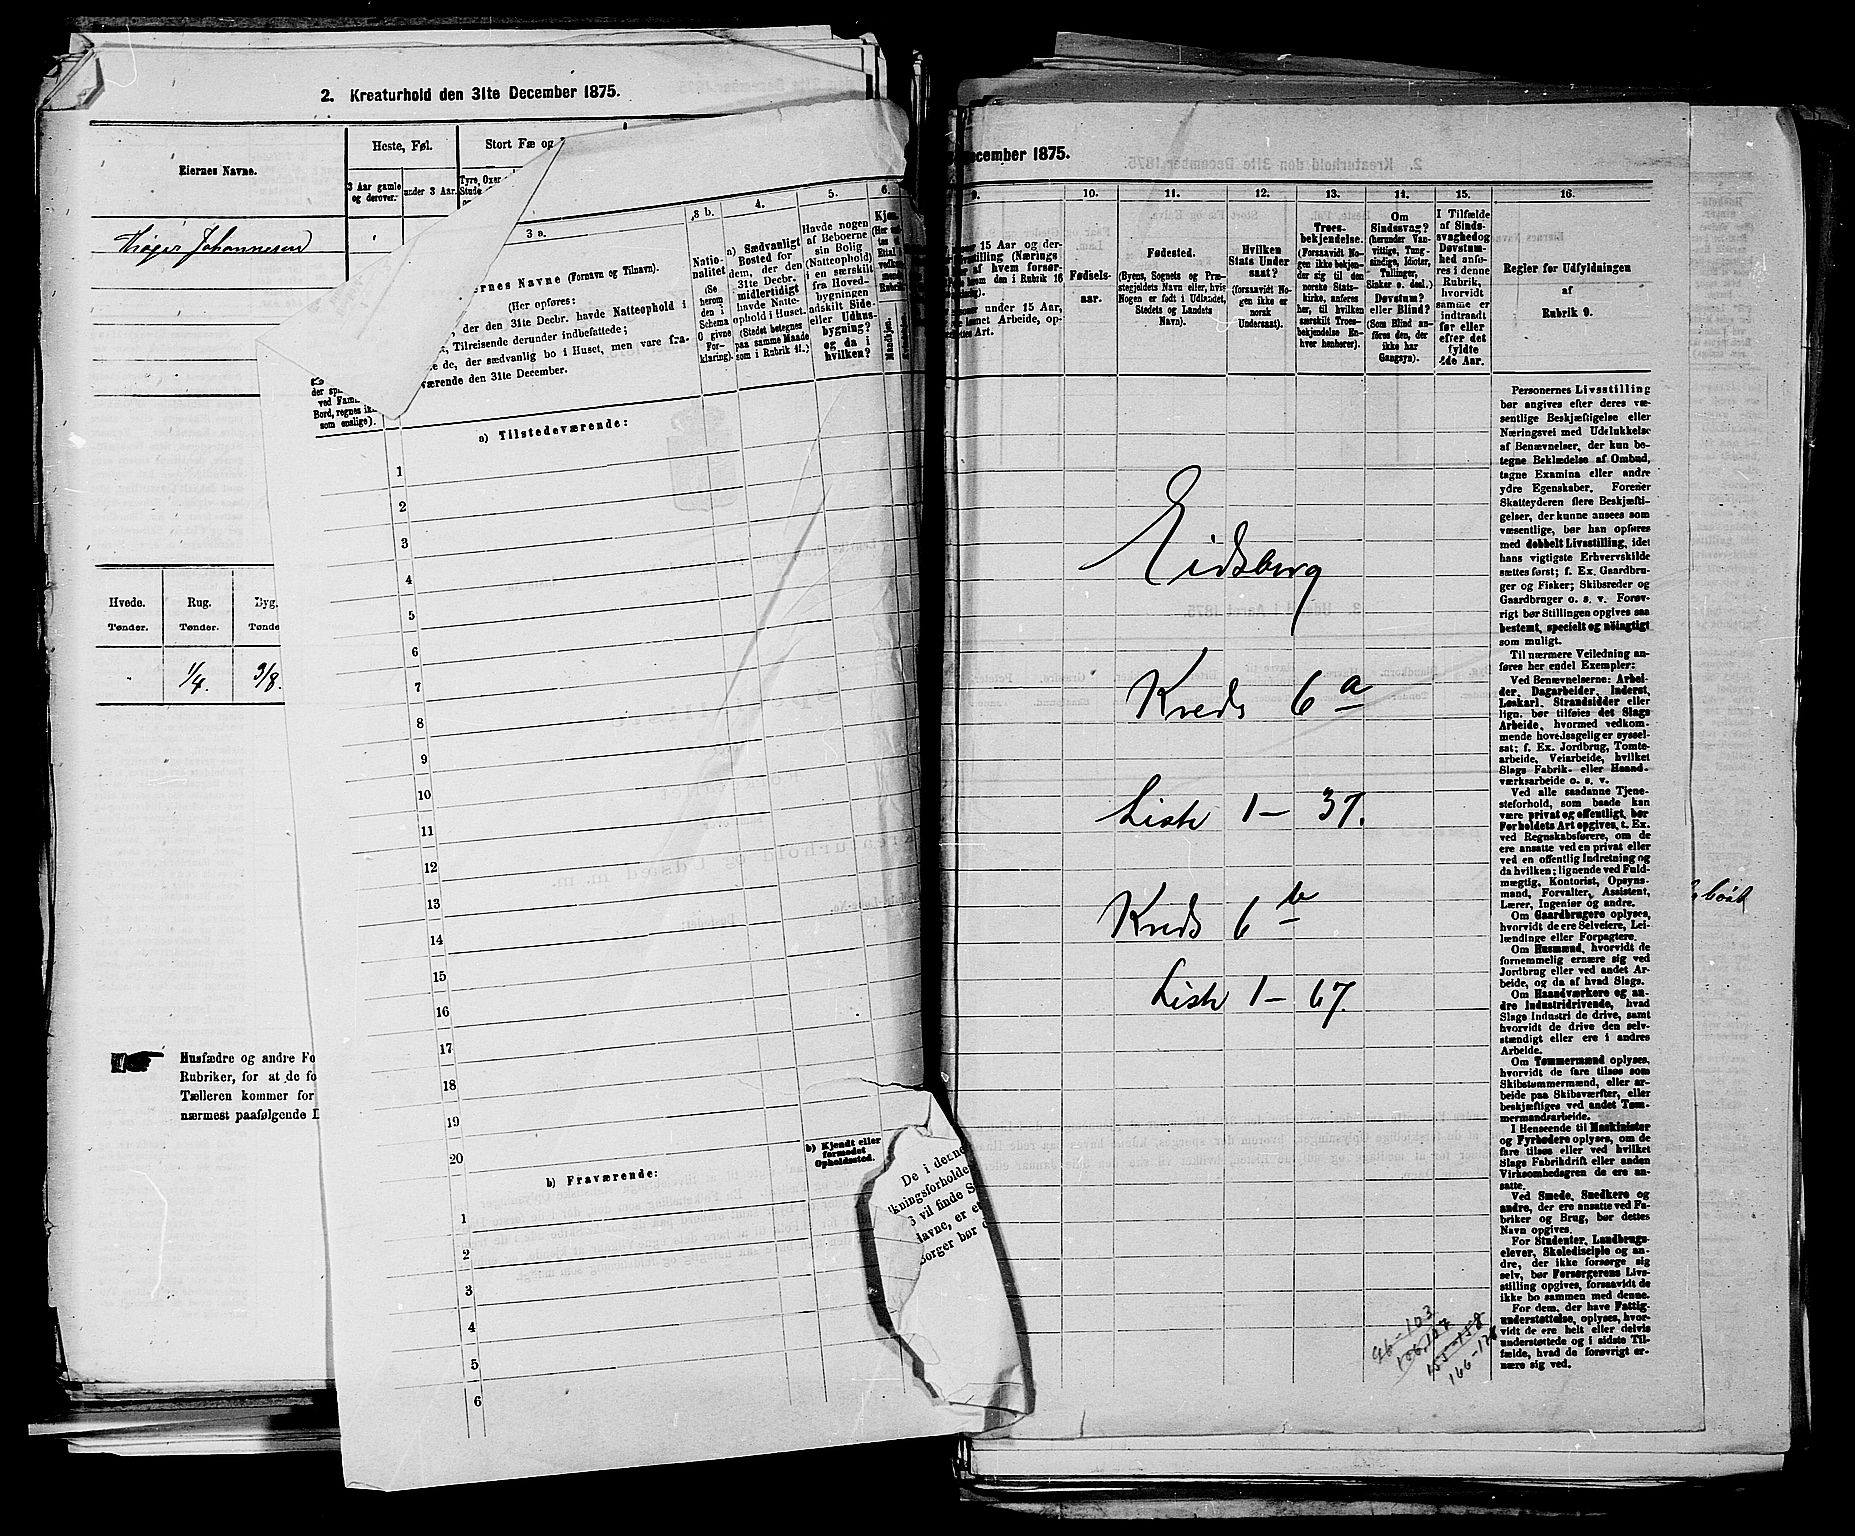 2. Kreaturhold den 31te December 1875.
Eiernes Navne.
Heste, Føl.
Stort Fæ og
3 Aar gamle og derover.
under 3 Aar.
Tyre, Oxer
Stude
Johannesen
Hvede.
Rug.
Byg.
Tønder.
Tønder.
Tønde
1/4.
3/8.
Husfædre og andre Fo
Rubriker, for at de fo
Tælleren kommer for
nærmest paafølgende D
3 a.
ernes Navne (Fornavn og Tilnavn).
(Her opføres:
, der den 31te Decbr. havde Natteophold i
t, Tilreisende derunder indbefattede;
e de, der sædvanlig bo i Huset, men vare fra-
værende den 31te December.
der sp
ved Fam
Bord, regnes ik
som enslige).
3 b.
Natio-
nalitet
(Se
herom
den i
Schema
O givne
For-
klaring).
4.
a) Sædvanligt
Bosted for
dem, der den
31te Decbr.
midlertidigt
havde Natte-
ophold i Huset.
(Stedet betegnes
paa samme Maade
som i Rubrik 11.)
5.
Havde nogen
af Beboerne
sin Bolig
(Natteophold)
i en særskilt
fra Hoved-
bygningen
adskilt Side-
eller Udhus-
bygning?
og da i
hvilken?
6.
Kjøn.
Mandkjøn.
a) Tilstedeværende:
1
2
3
4
5
6
7
8
9
10
11
12
13
14
15
16
17
18
19
20
b) Kjendt eller
formodet
Opholdssted.
b) Fraværende:
1
2
3
4
5
6
De i denne
kningsforholde
vil finde S
Navne, er e
Borger bør
ecember 1875.
9.
15 Aar og der-
stilling (Nærings
af hvem forsør-
hvem den i Rubrik 16
under 15 Aar,
lønnet Arbeide, op-
etes Art.
10.
Fødsels-
aar.
11.
Fødested.
(Byens, Sognets og Præ-
stegjeldets Navn eller, hvis
Nogen er født i Udlandet,
Stedets og Landets
Navn).
12.
Hvilken
Stats Under
saat?
(forsaavidt No-
gen ikke er
norsk
Undersaat).
13.
Troes-
bekjendelse.
(Forsaavidt No-
gen ikke bekjen-
der sig til den
norske Stats-
kirke, anføres
her, til hvilken
særskilt Troes-
bekjendelse En-
hver henhører).
14.
Om
Sindssvag?
(herunder Van-
vittige, Tung-
sindige, Idioter,
Tullinger,
Sinker o. desl.)
Døvstum?
eller Blind?
(Som Blind an-
føres den, der
ikke har
Gangsyn).
15.
I Tilfælde
af Sinds-
svaghed og
Døvstum-
hed anfø-
res i denne
Rubrik,
hvorvidt
samme er
indtraadt
før eller
efter det
fyldte
4de Aar.
16.
Regler for Udfyldningen
af
Rubrik 9.
Eidsberg
Kreds 6 a
Liste 1 – 37.
Kreds 6 b
Liste 1 – 67.
Personernes Livsstilling
bør angives efter deres væ-
sentlige Beskjæftigelse eller
Næringsvei med Udelukkelse
af Benævnelser, der kun be-
tegne Beklædelse af Ombud,
tagne Examina eller andre
ydre Egenskaber. Forener
Skatteyderen flere Beskjæfti-
gelser, der kunne ansees som
væsentlige, bør han opføres
med dobbelt Livsstilling, idet
hans vigtigste Erhvervskilde
sættes først; f. Ex. Gaardbru-
ger og Fisker; Skibsreder og
Gaardbruger o. s. v. Forøv-
rigt bør Stillingen opgives saa
bestemt, specielt og nöiagtigt
som muligt.
Til nærmere Veiledning an-
føres her endel Exempler:
Ved Benævnelserne: Arbei-
der, Dagarbeider, Inderst,
Løskarl, Strandsidder eller
lign. bør tilføies det Slags
Arbeide, hvormed vedkom-
mende hovedsagelig er syssel-
sat; f. Ex. Jordbrug, Tomte-
arbeide, Veiarbeide, hvilket
Slags Fabrik- eller Haand-
værksarbeide o. s. v.
Ved alle saadanne Tjene-
steforhold, som baade kan
være privat og offentligt, bør
Forholdets Art opgives, t. Ex.
ved Regnskabsførere, om de
ere ansatte ved en privat eller
ved en offentlig Indretning og
da hvilken; lignende ved Fuld-
mægtig, Kontorist, Opsyns-
mand, Forvalter, Assistent,
Lærer, Ingeniør og andre.
Om Gaardbrugere oplyses,
hvorvidt de ere Selveiere, Lei-
lændinge eller Forpagtere.
Om Husmænd, hvorvidt de
fornemmelig ernære sig ved
Jordbrug eller ved andet Ar-
beide, og da af hvad Slags.
Om Haandværkere og an-
dre Industridrivende, hvad
Slags Industri de drive, samt
hvorvidt de drive den selv-
stændigt eller ere i andres
Arbeide.
Om Tømmermænd oplyses,
hvorvidt de fare tilsøs som
Skibstømmermænd, eller ar-
beide paa Skibsværfter, eller
beskjæftiges ved andet Tøm-
mermandsarbeide.
I Henseende til Maskinister
og Fyrbødere oplyses, om de
fare tilsøs eller ved hvad
Slags Fabrikdrift eller anden
Virksomhedsgren de ere an-
satte.
Ved Smede, Snedkere og
andre, der ere ansatte ved Fa-
briker og Brug, bør dettes
Navn opgives.
For Studenter, Landbrugs-
elever, Skoledisciple og an-
dre, der ikke forsørge sig
selv, bør Forsørgerens Livs-
stilling opgives, forsaavidt de
ikke bo sammen med denne.
For dem, der have Fattig-
understøttelse, oplyses, hvor-
vidt de ere helt eller delvis
understøttede og i sidste Til-
fælde, hvad de forøvrigt er-
nære sig ved.
96–103
106–107
155–158